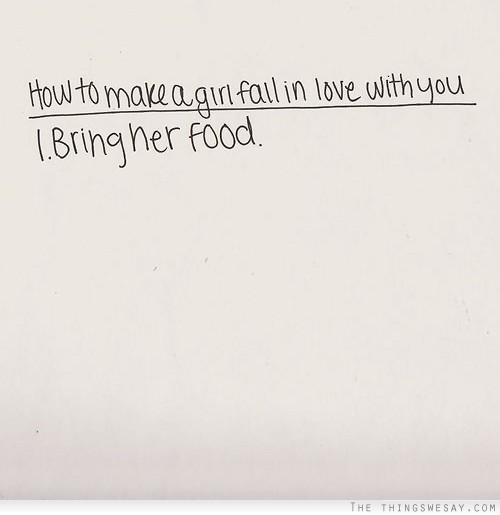 How to make a girl fall in love with you
1. Bring her food.
THE THINGSWESAY.COM